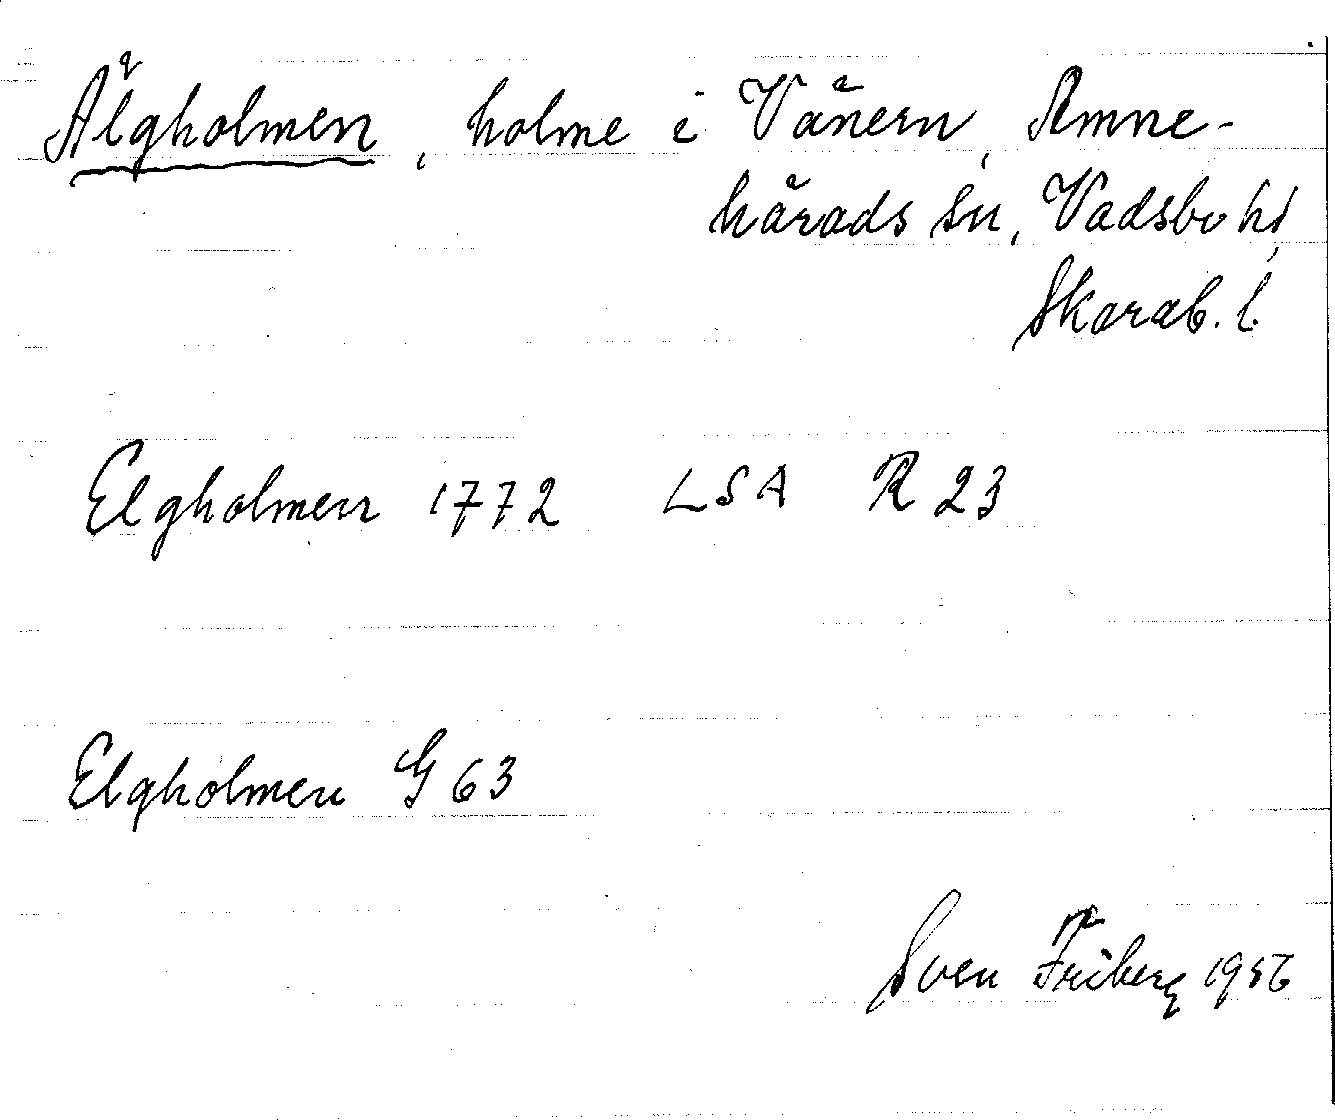 Älgholmen, holme i Vänern, Amne-
härads sn, Vadsbo hd,
Skarab. l.
Elgholmen 1772 LSA R 23
Elgholmen G 63
Sven Friberg 1956